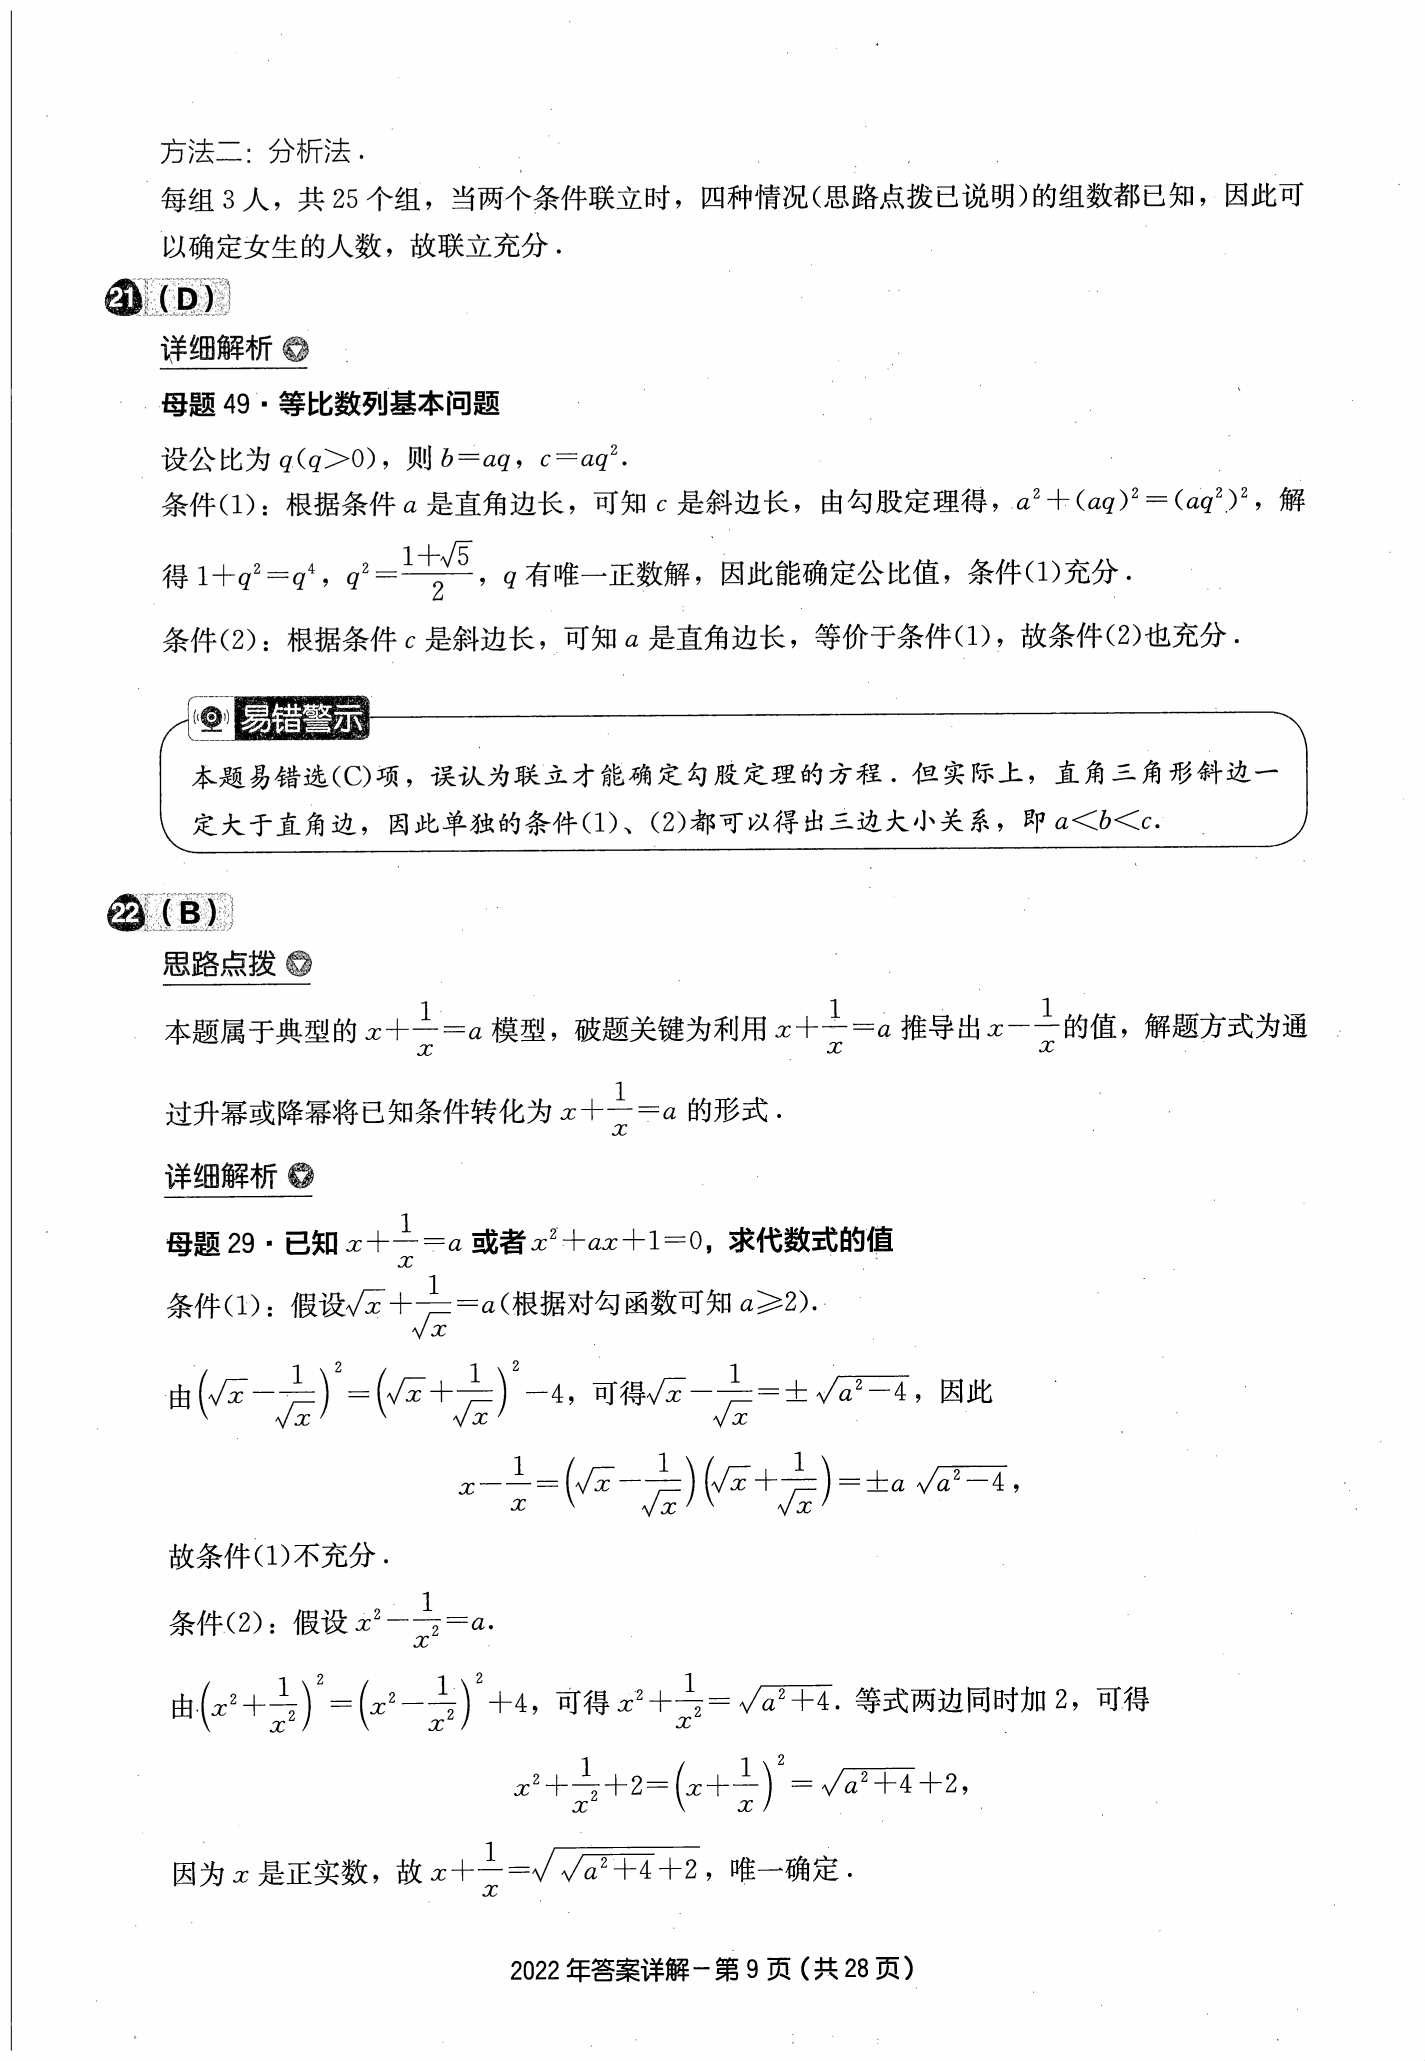 方法二：分析法．
每组 3 人，共 25 个组，当两个条件联立时，四种情况(思路点拨已说明)的组数都已知，因此可
以确定女生的人数，故联立充分．
21 (D)
详细解析
母题 49·等比数列基本问题
设公比为 q(q＞0)，则 b＝aq，c＝aq².
条件(1)：根据条件 a 是直角边长，可知 c 是斜边长，由勾股定理得，a²＋(aq)²＝(aq²)²，解
得 1＋q²＝q⁴，q²＝(1＋√5)/2，q 有唯一正数解，因此能确定公比值，条件(1)充分．
条件(2)：根据条件 c 是斜边长，可知 a 是直角边长，等价于条件(1)，故条件(2)也充分．
易错警示
本题易错选(C)项，误认为联立才能确定勾股定理的方程．但实际上，直角三角形斜边一
定大于直角边，因此单独的条件(1)、(2)都可以得出三边大小关系，即 a＜b＜c.
22 (B)
思路点拨
本题属于典型的 x＋1/x＝a 模型，破题关键为利用 x＋1/x＝a 推导出 x－1/x 的值，解题方式为通
过升幂或降幂将已知条件转化为 x＋1/x＝a 的形式．
详细解析
母题 29·已知 x＋1/x＝a 或者 x²＋ax＋1＝0，求代数式的值
条件(1)：假设√x＋1/√x＝a(根据对勾函数可知 a≥2).
由(√x－1/√x)²＝(√x＋1/√x)²－4，可得√x－1/√x＝±√(a²－4)，因此
x－1/x＝(√x－1/√x)(√x＋1/√x)＝±a√(a²－4)，
故条件(1)不充分．
条件(2)：假设 x²－1/x²＝a.
由(x²＋1/x²)²＝(x²－1/x²)²＋4，可得 x²＋1/x²＝√(a²＋4). 等式两边同时加 2，可得
x²＋1/x²＋2＝(x＋1/x)²＝√(a²＋4)＋2，
因为 x 是正实数，故 x＋1/x＝√(√(a²＋4)＋2)，唯一确定．
2022 年答案详解－第 9 页(共 28 页)